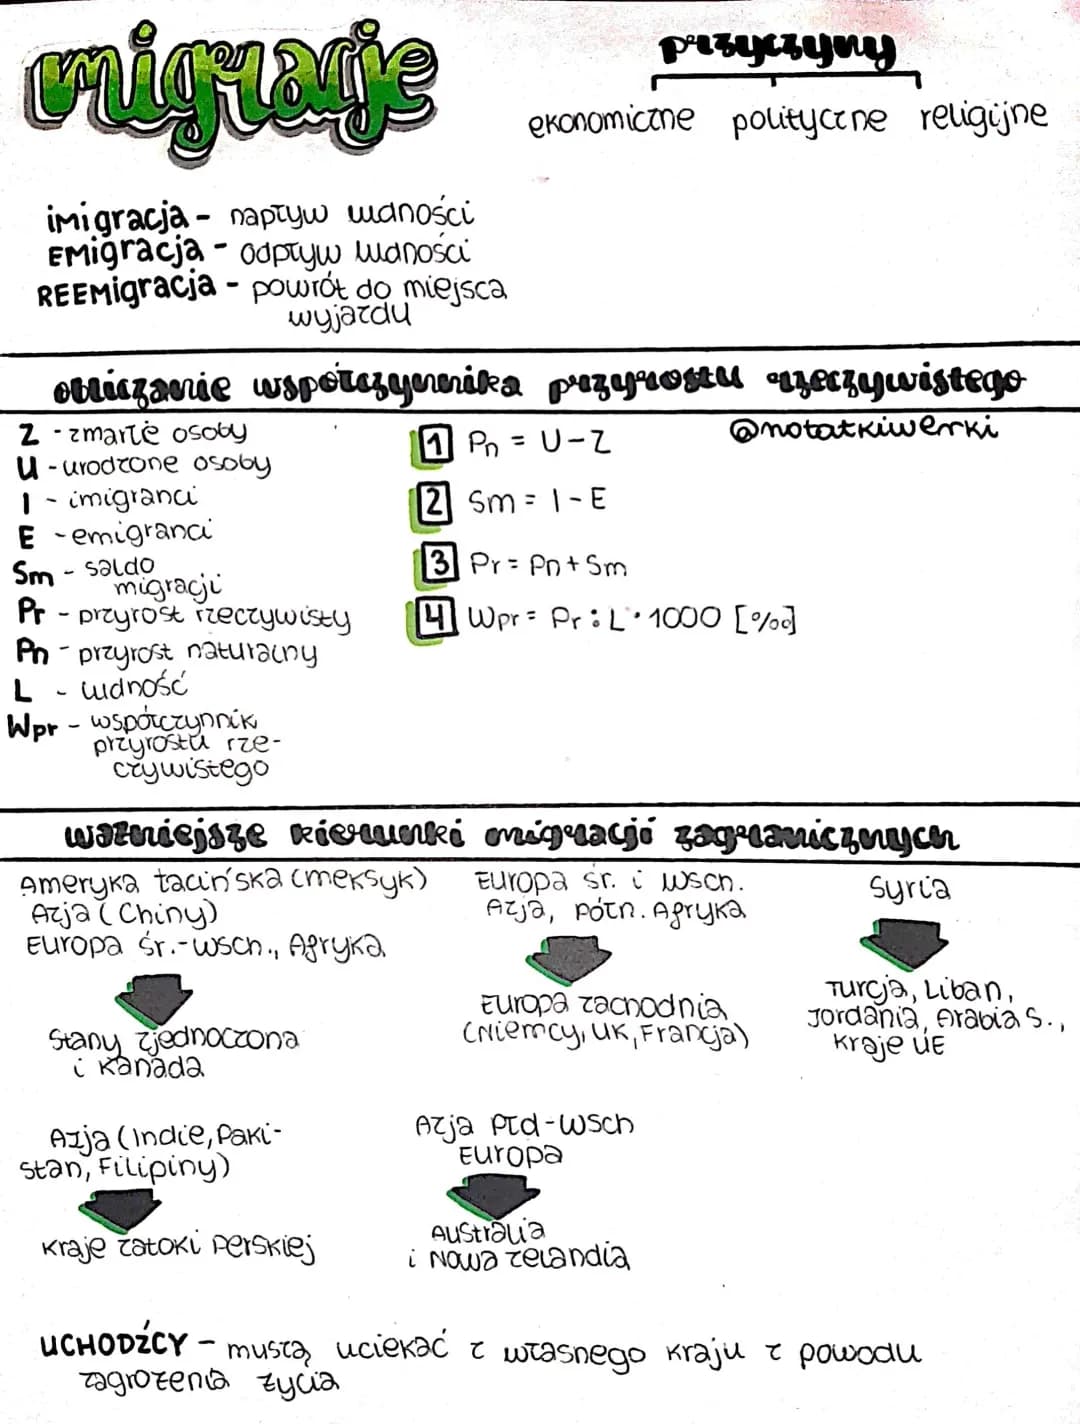 migracje
przyczyny
ekonomiczne polityczne religijne
imigracja - napływ ludności
EMigracja - odpływ ludności
REEMigracja - powrót do miejsca
wyjazdu
obliczanie współczynnika przyrostu rzeczywistego
@notatkiwerki
Z - zmarłe osoby
U - urodzone osoby
I - imigranci
E - emigranci
Sm - saldo
migracji
Pr - przyrost rzeczywisty
Pn - przyrost naturalny
L - ludność
Wpr - współczynnik
przyrostu rze-
czywistego
1 Pn = U - Z
2 Sm = I - E
3 Pr = Pn + Sm
4 Wpr = Pr : L · 1000 [‰]
ważniejsze kierunki migracji zagranicznych
Ameryka łacińska (meksyk)
Azja (Chiny)
Europa śr.-wsch., Afryka
Stany zjednoczona
i Kanada
Europa śr. i wsch.
Azja, półn. Afryka
Europa zachodnia
(Niemcy, UK, Francja)
Syria
Turcja, Liban,
Jordania, Arabia S.,
Kraje UE
Azja (Indie, Paki-
stan, Filipiny)
Kraje zatoki Perskiej
Azja Płd-wsch
Europa
Australia
i Nowa zelandia
UCHODŹCY - muszą uciekać z własnego kraju z powodu
zagrożenia życia